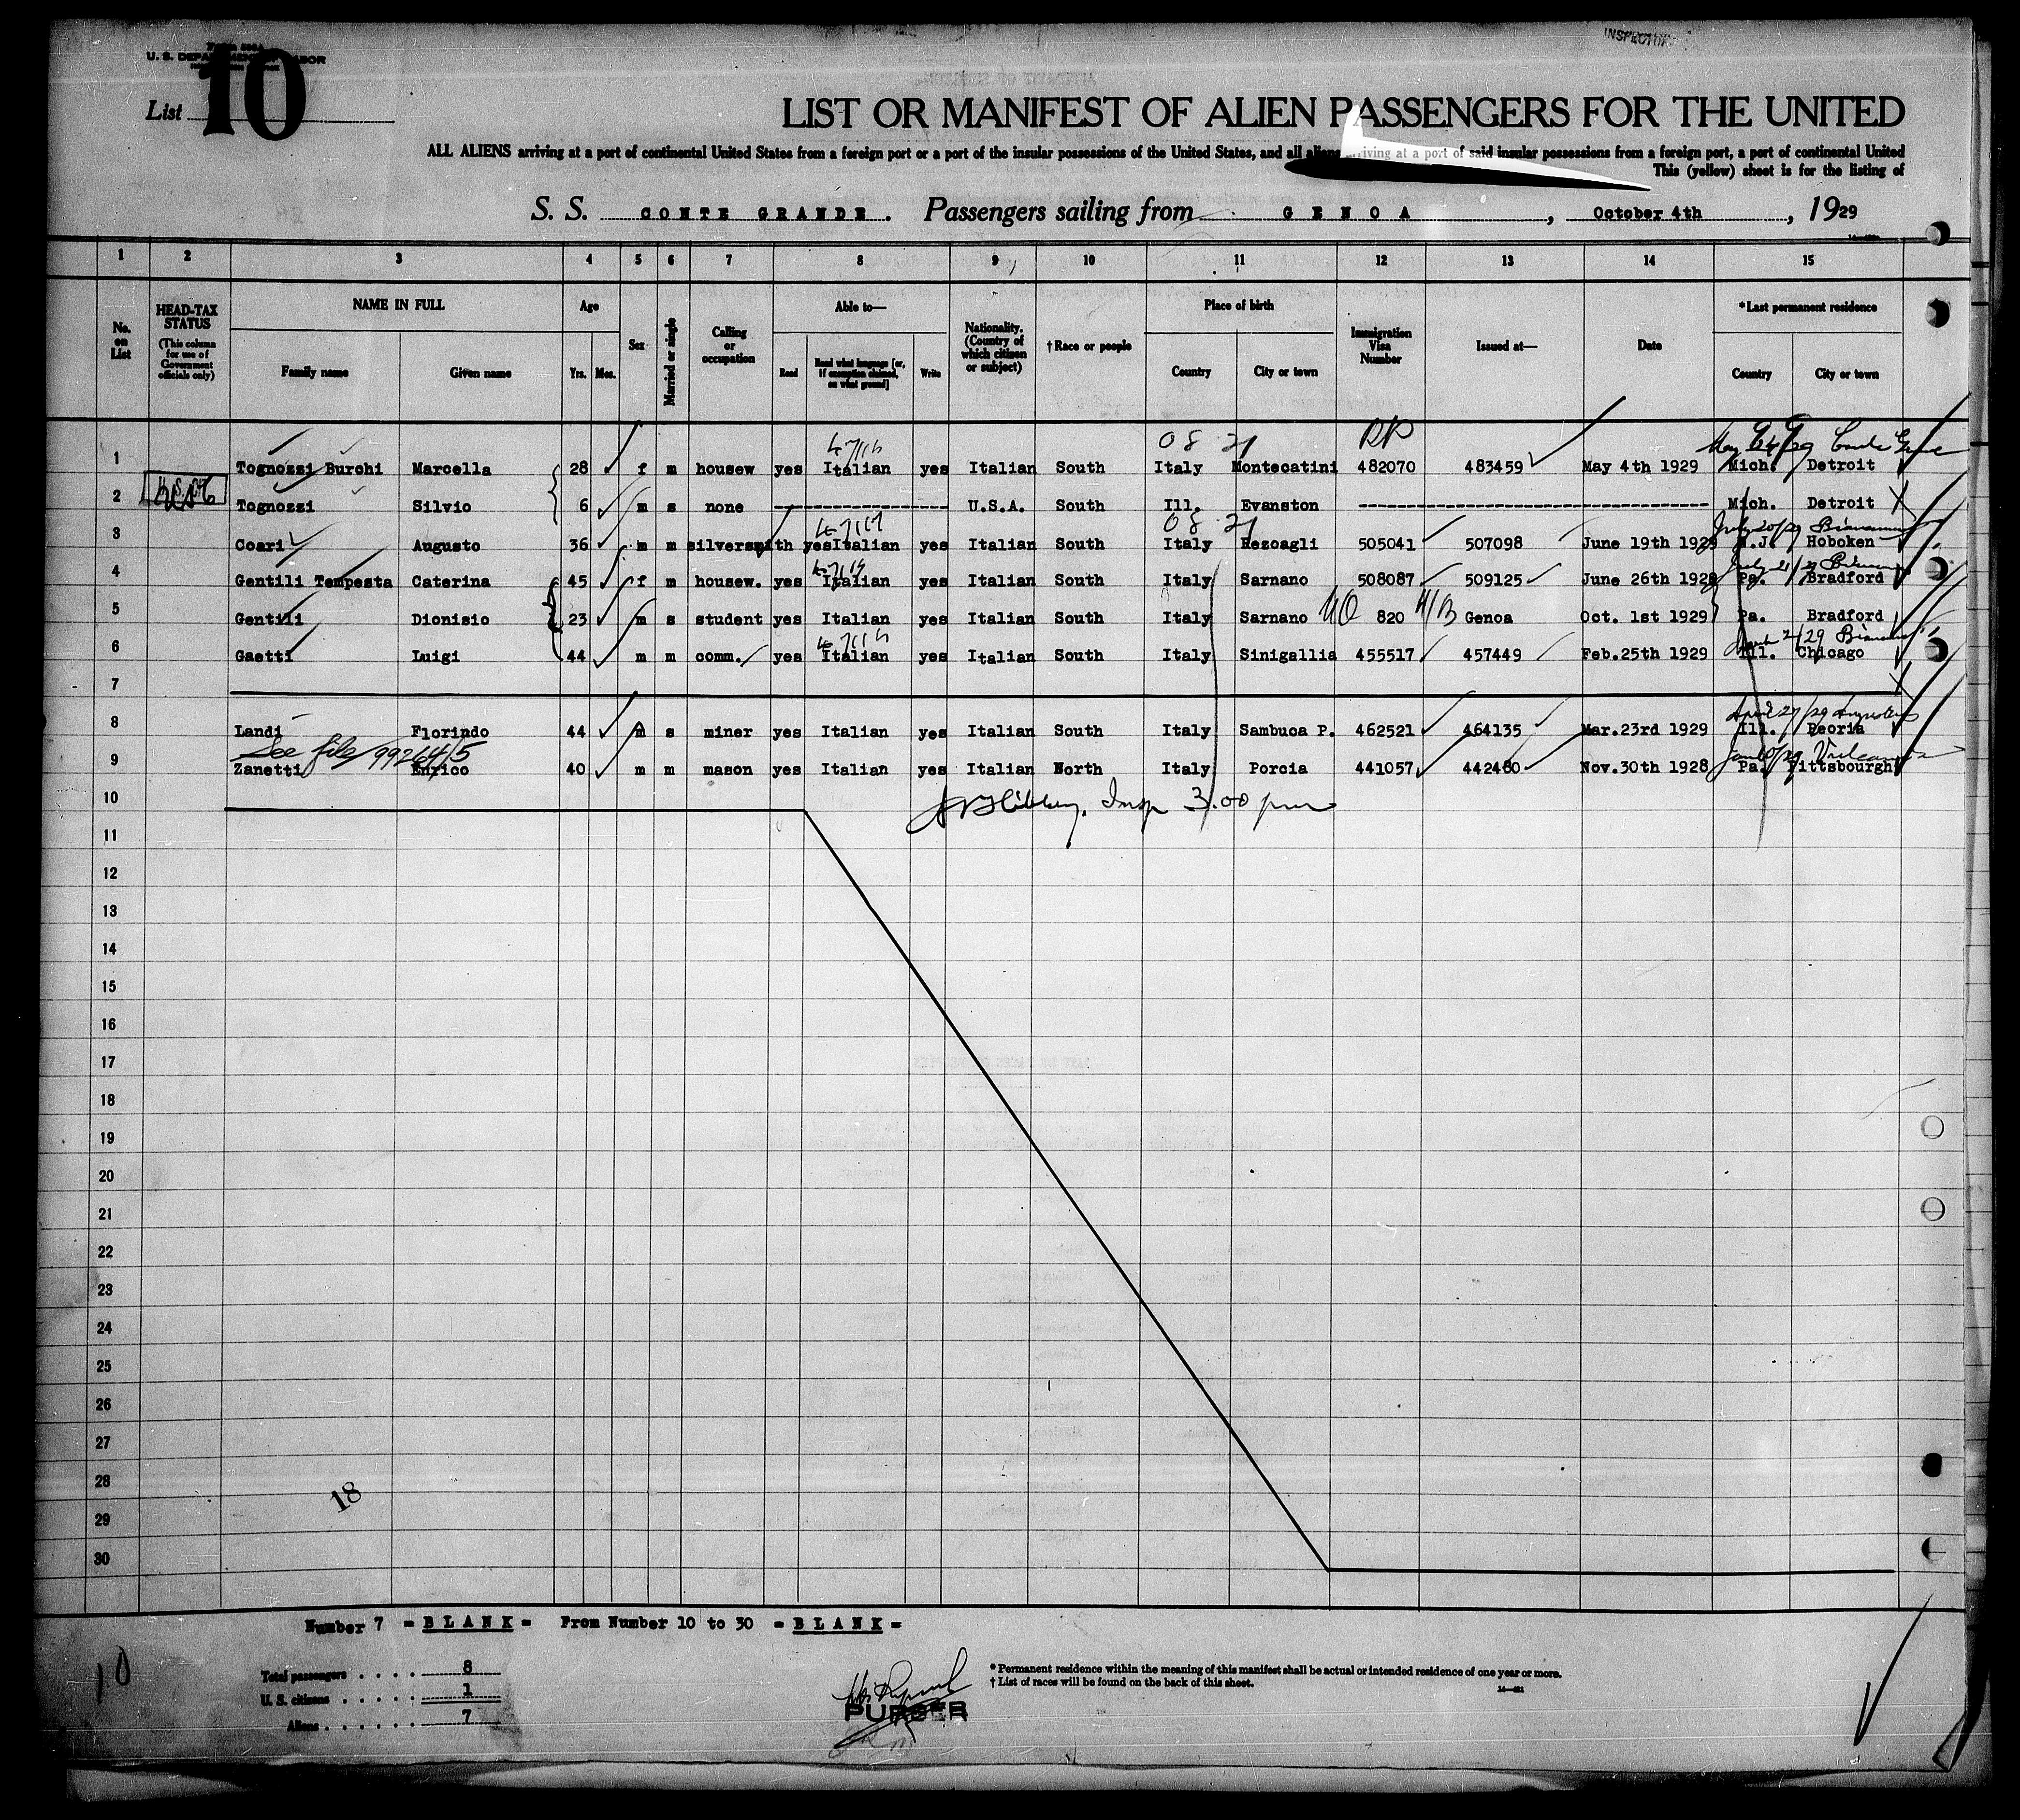 INSPECTOR
U. S. DEPARTMENT OF LABOR
List 10
LIST OR MANIFEST OF ALIEN PASSENGERS FOR THE UNITED
ALL ALIENS arriving at a port of continental United States from a foreign port or a port of the insular possessions of the United States, and all aliens arriving at a port of said insular possessions from a foreign port, a port of continental United
This (yellow) sheet is for the listing of
S. S. CONTE GRANDE. Passengers sailing from GENOA, October 4th, 1929
1 2 3 4 5 6 7 8 9 10 11 12 13 14 15
No. on List
HEAD-TAX STATUS (This column for use of Government officials only)
NAME IN FULL Family name Given name
Age Yrs. Mos.
Sex
Married or single
Calling or occupation
Able to— Read Read what language [or, if exemption claimed, on what ground] Write
Nationality. (Country of which citizen or subject)
†Race or people
Place of birth Country City or town
Immigration Visa Number
Issued at—
Date
*Last permanent residence Country City or town
08 21 RP May 24/29 Conte Grande
1 Tognozzi Burchi Marcella 28 f m housew yes Italian yes Italian South Italy Montecatini 482070 483459 May 4th 1929 Mich. Detroit
2 Tognozzi Silvio 6 m s none U.S.A. South Ill. Evanston Mich. Detroit
08 21 July 20/29
3 Coari Augusto 36 m m silversmith yes Italian yes Italian South Italy Rezoagli 505041 507098 June 19th 1929 N.J. Hoboken
4 Gentili Tempesta Caterina 45 f m housew. yes Italian yes Italian South Italy Sarnano 508087 509125 June 26th 1929 Pa. Bradford
5 Gentili Dionisio 23 m s student yes Italian yes Italian South Italy Sarnano 820 Genoa Oct. 1st 1929 Pa. Bradford
6 Gaetti Luigi 44 m m comm. yes Italian yes Italian South Italy Sinigallia 455517 457449 Feb.25th 1929 Ill. Chicago
7
April 27/29 Augustus
8 Landi Florindo 44 m s miner yes Italian yes Italian South Italy Sambuca P. 462521 464135 Mar.23rd 1929 Ill. Peoria
See file 99264/5 Vulcania
9 Zanetti Enrico 40 m m mason yes Italian yes Italian North Italy Porcia 441057 442480 Nov.30th 1928 Pa. Pittsbourgh
10 Insp 3.00 pm
11
12
13
14
15
16
17
18
19
20
21
22
23
24
25
26
27
28
18
29
30
Number 7 = BLANK = From Number 10 to 30 = BLANK =
10
Total passengers . . . . 8
U. S. citizens . . . . . 1
Aliens . . . . . . 7
PURSER
* Permanent residence within the meaning of this manifest shall be actual or intended residence of one year or more.
† List of races will be found on the back of this sheet.